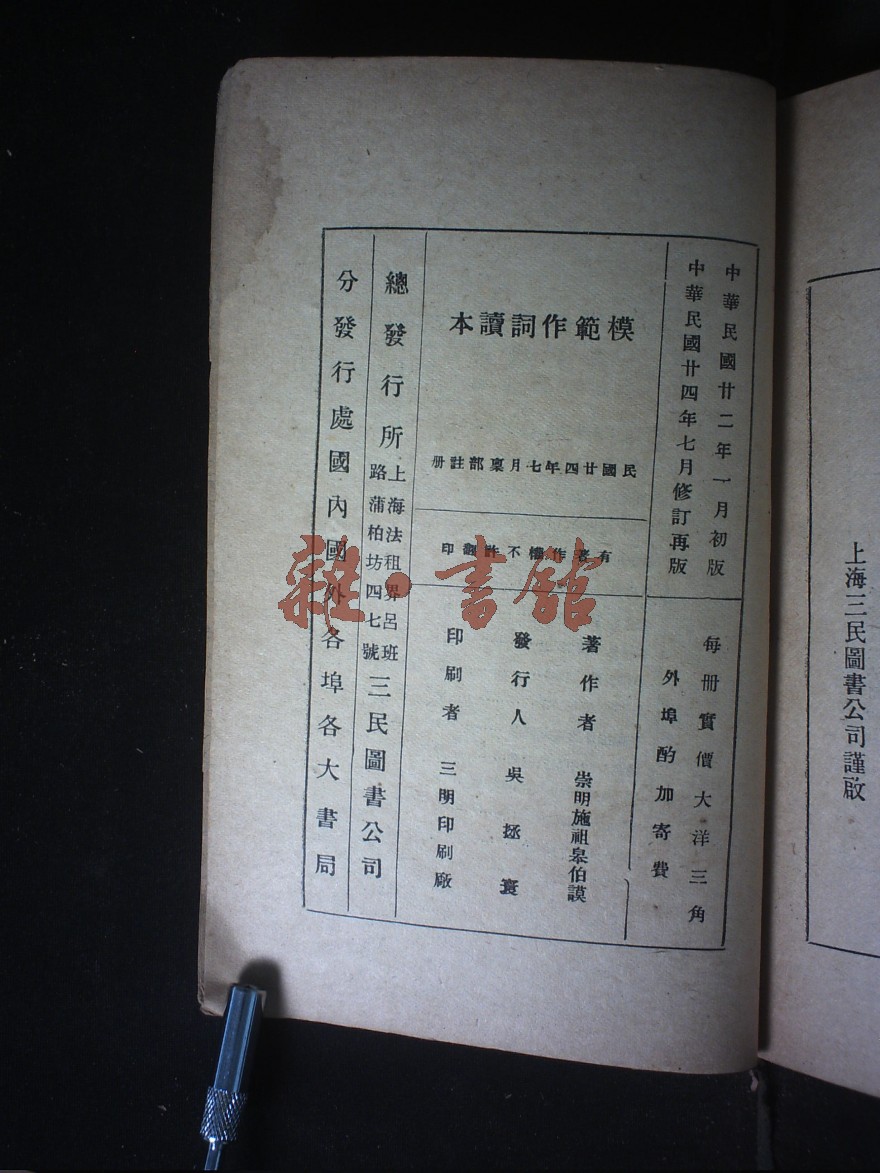 中華民國廿二年一月初版
中華民國廿四年七月修訂再版
每冊實價大洋三角
外埠酌加寄費
模範作詞讀本
民國廿四年七月稟部註冊
有著作權不許翻印
著作者 崇明施祖皋伯謨
發行人 吳拯寰
印刷者 三明印刷廠
總發行所 上海法租界呂班路蒲柏坊四七號 三民圖書公司
分發行處國內國外各埠各大書局
上海三民圖書公司謹啟
雜·書館